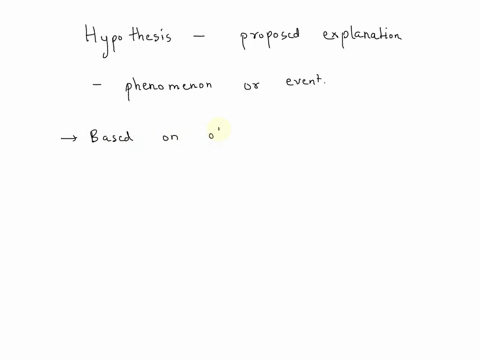 Hypothesis - proposed explanation
- phenomenon or event.
→ Based on